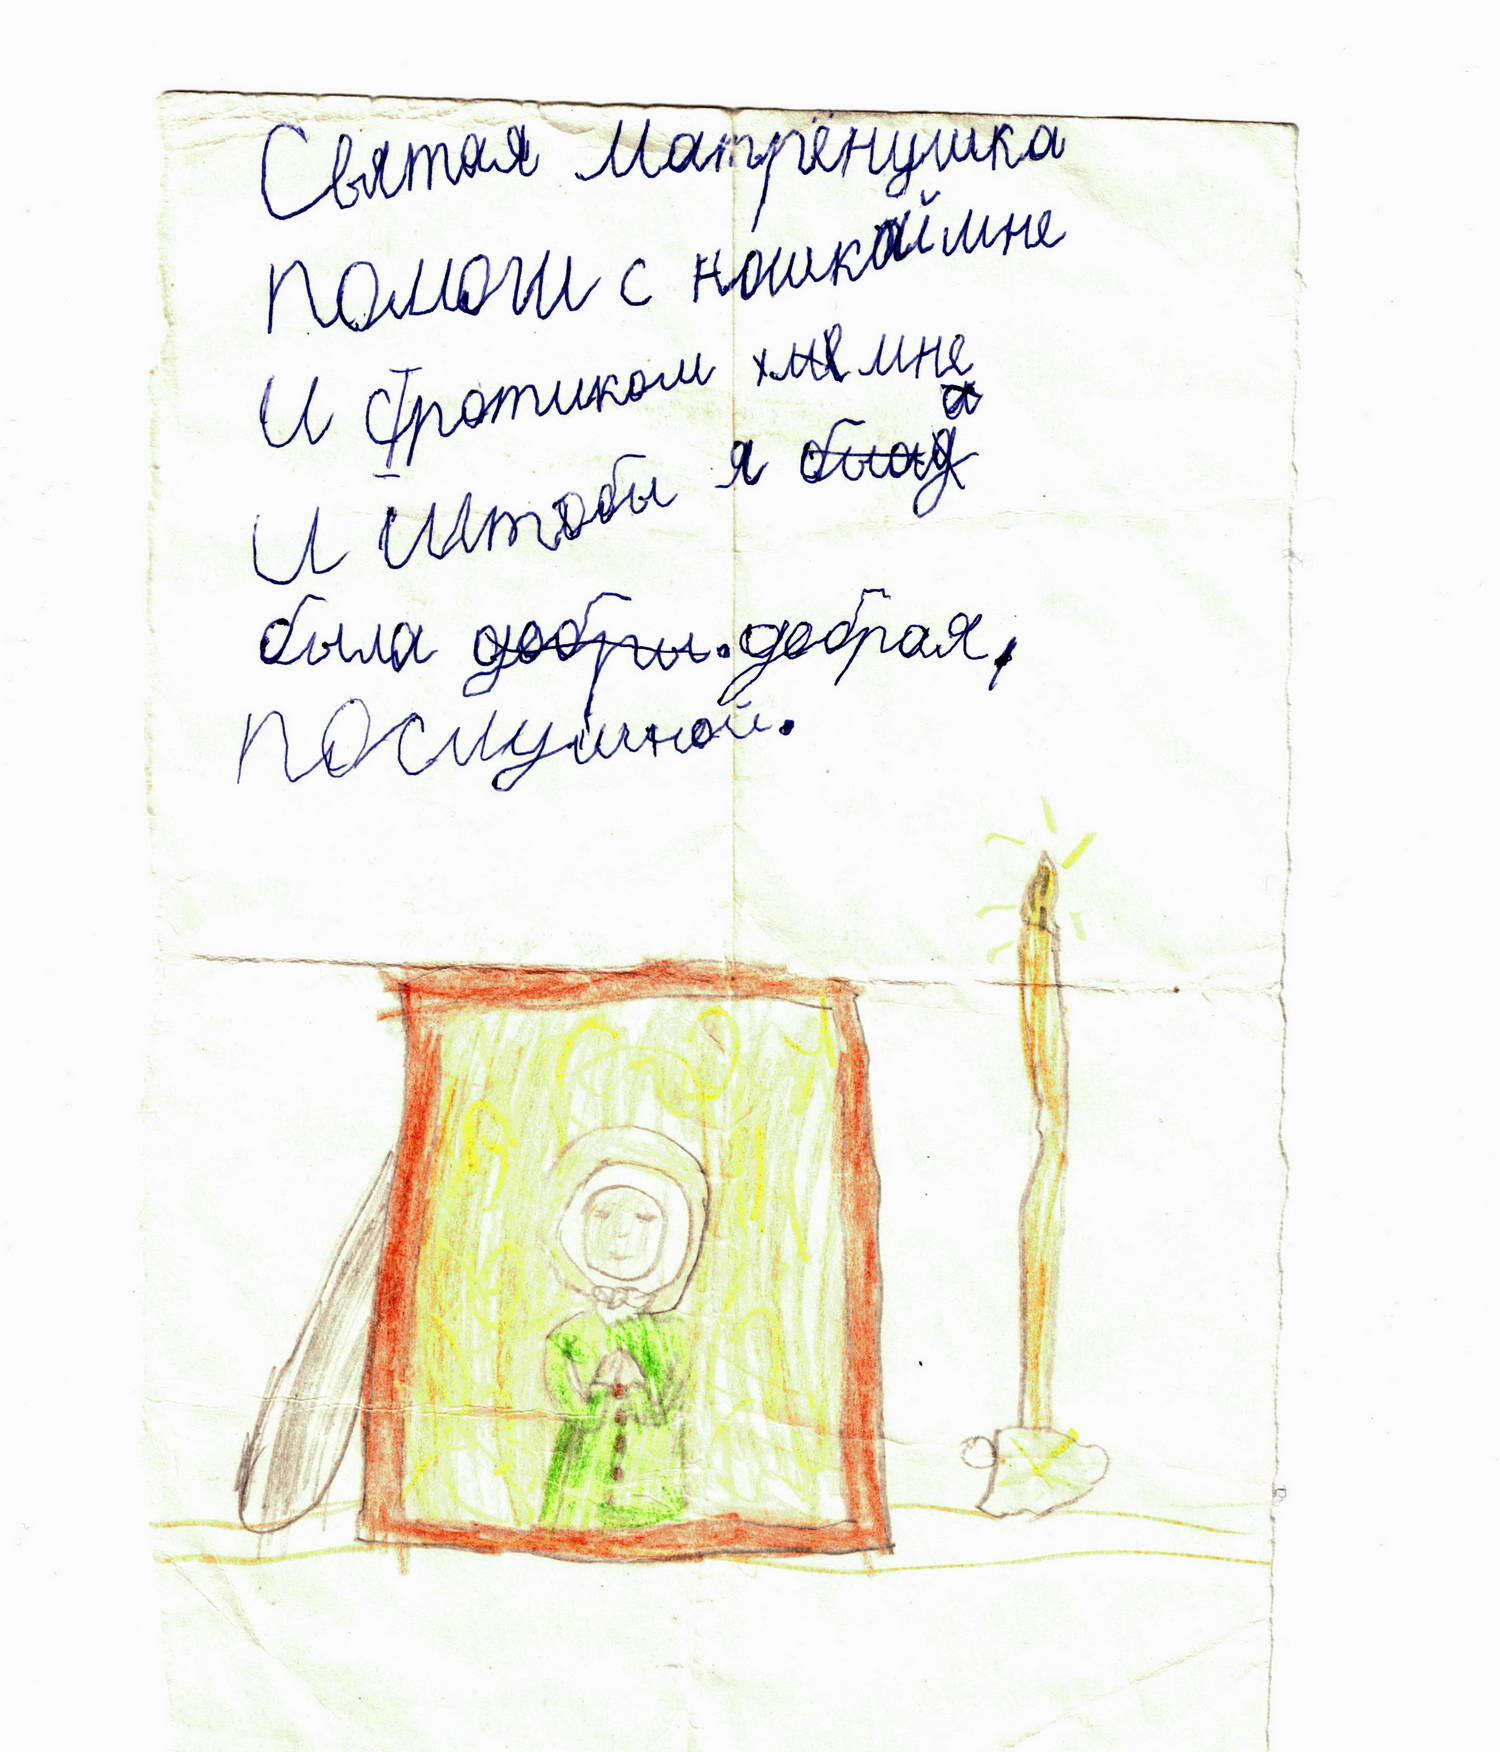 Святая Матрёнушка
помоги с ношкай мне
И Фротиком мне
И Штобы я
была добрая,
послушной.